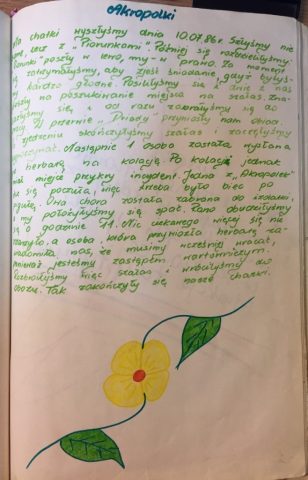 Akropolki
Do chatki wyszłyśmy dnia 10.07.86r. Szłyśmy nie
lecz z „Piorunkami". Później się rozdzieliłyśmy.
Piorunki poszły w lewo, my - w prawo. Za
zatrzymałyśmy, aby zjeść śniadanie, gdyż byłyś-
bardzo głodne. Posiliłyśmy się i one z nas
poszły na poszukiwanie miejsca na szałas. Zna-
się i od razu zabrałyśmy się do
W przerwie „Pniady" przyniosły nam obiad.
zjedzeniu skończyłyśmy szałas i zaczęłyśmy
Następnie 1 osoba została wysłana
herbatę na kolację. Po kolacji jednak
miał miejsce przykry incydent. Jedna z „Akropolek"
się poczuła, więc trzeba było biec po
Ona chora została zabrana do izolatki,
i my położyłyśmy się spać. Rano obudziłyśmy
o godzinie 11. Nic ciekawego więcej się nie
a osoba, która przyniosła herbatę za-
nas, że musimy wcześniej wracać,
ponieważ jesteśmy zastępem wartowniczym.
Rozebrałyśmy więc szałas i wróciłyśmy do
obozu. Tak zakończyły się nasze chatki.